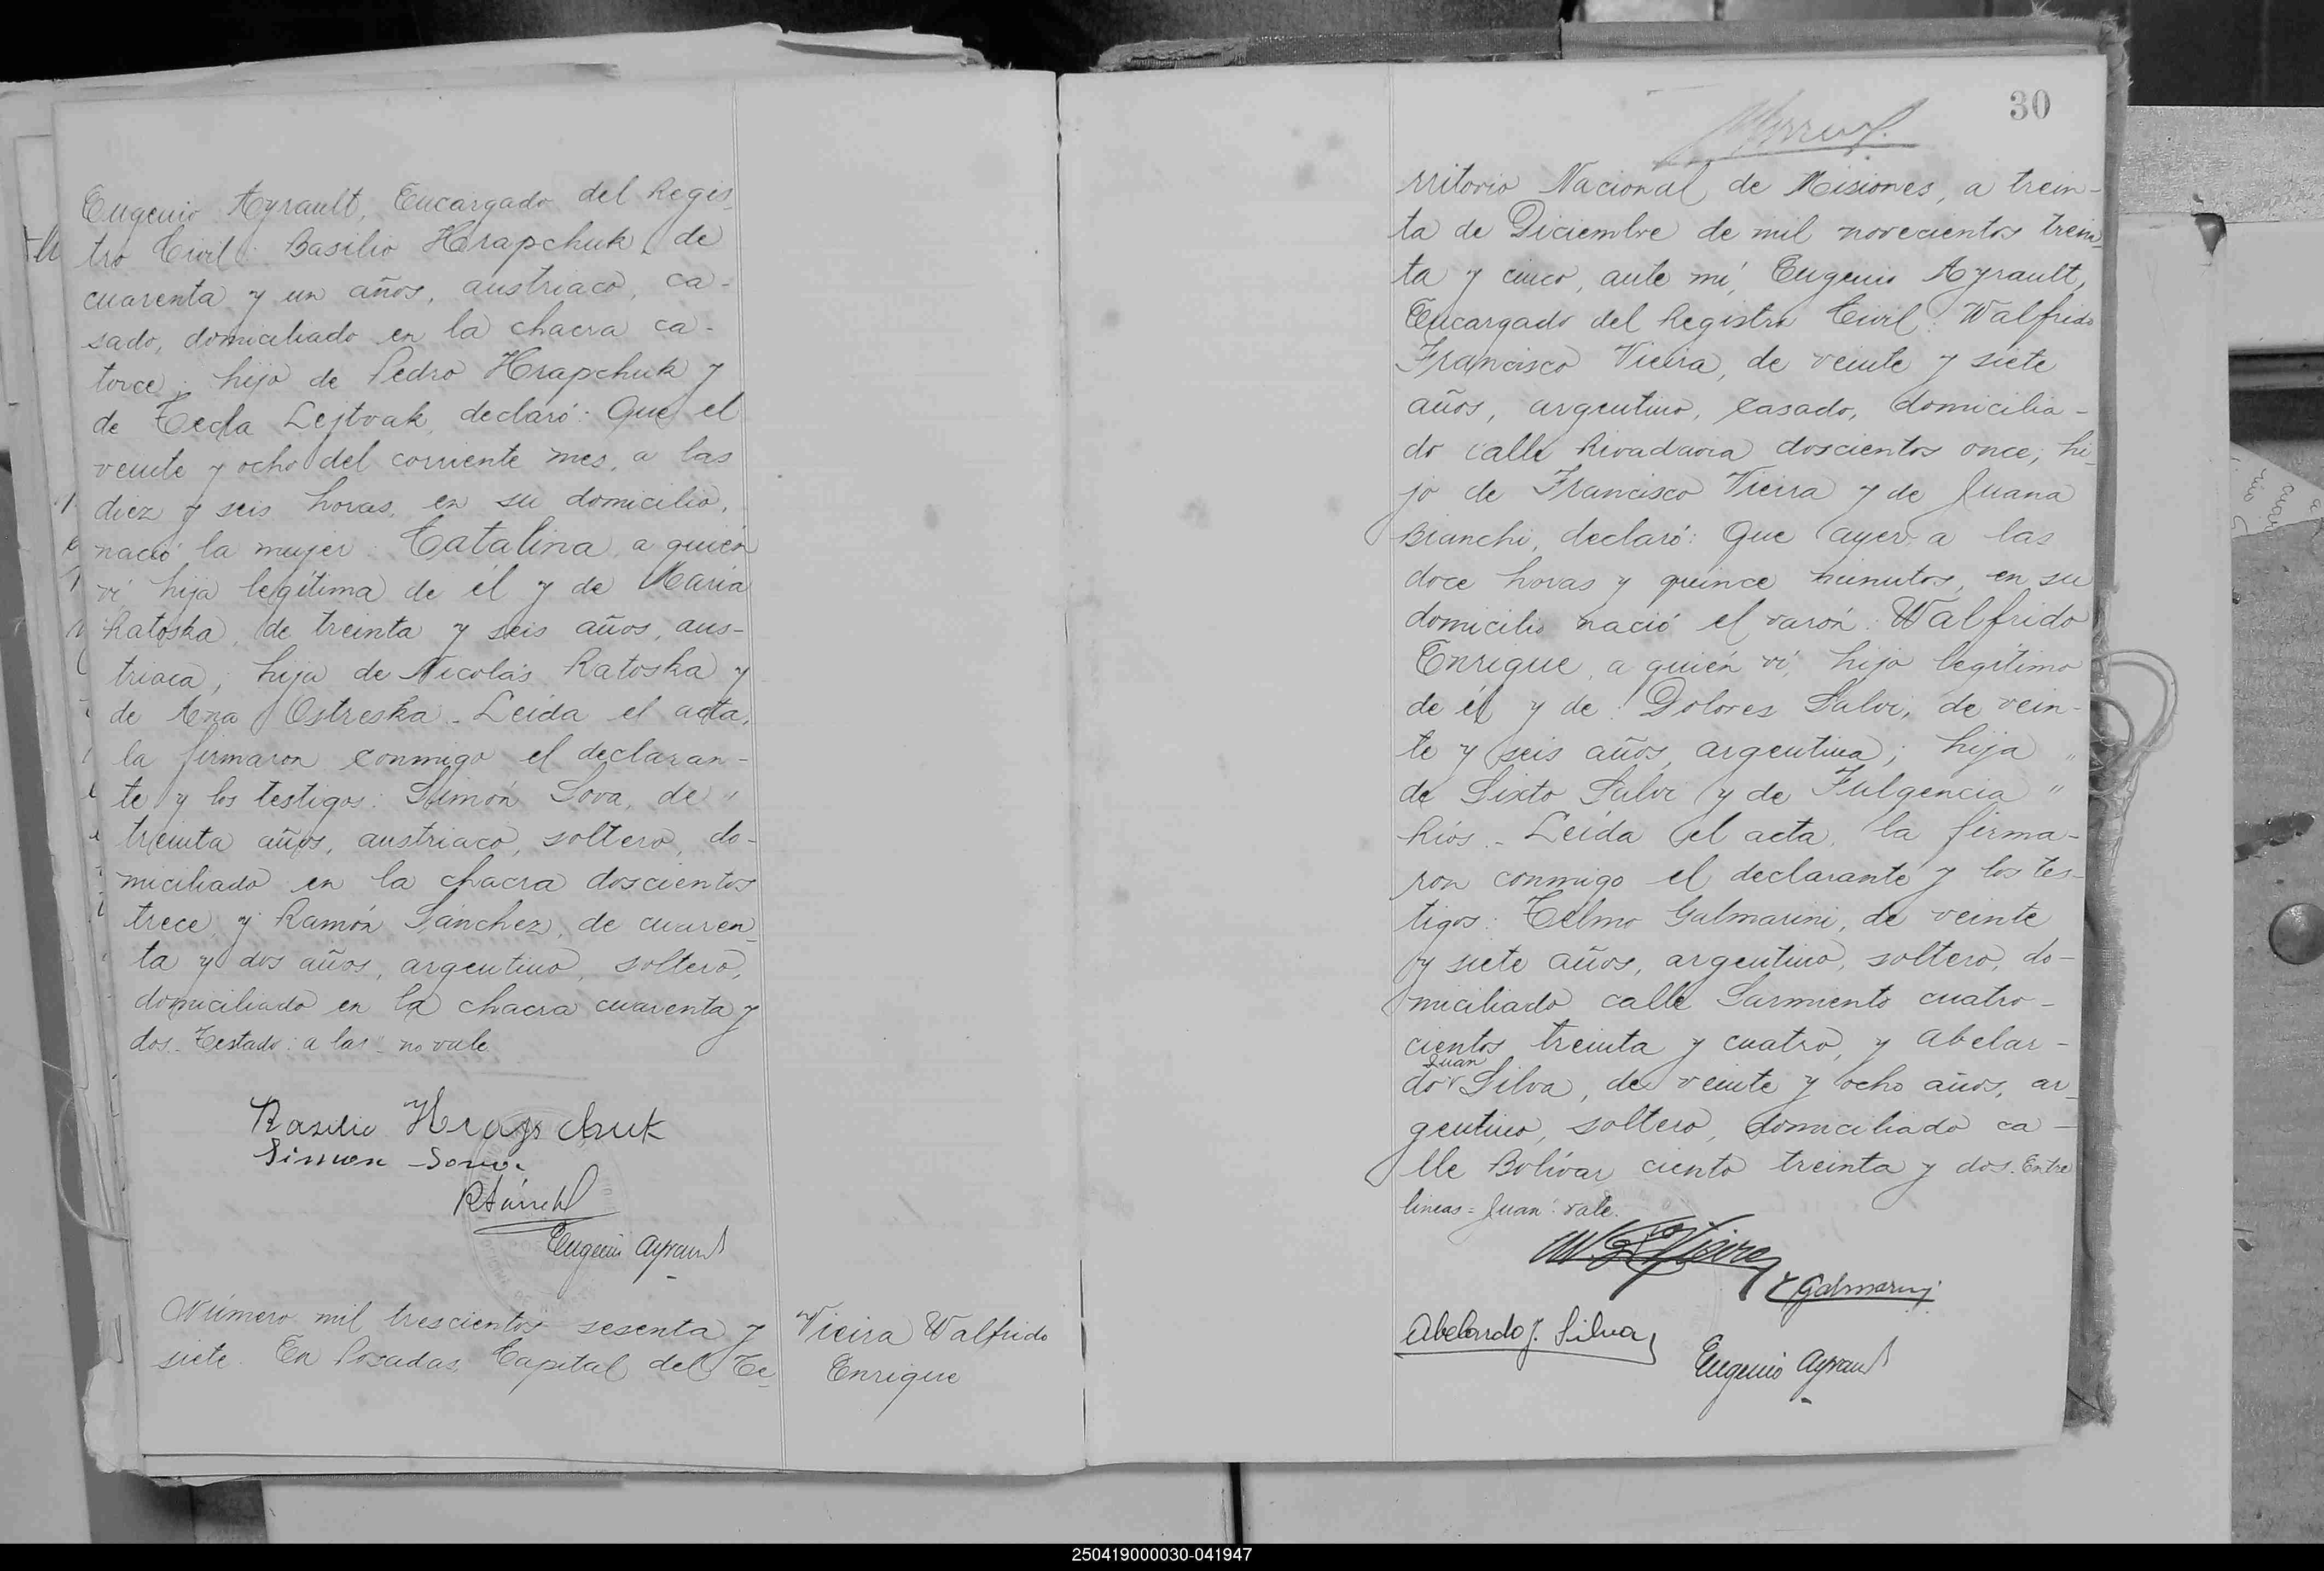 Eugenio Ayrault, Encargado del Regis-
tro Civil: Basilio Hrapchuk, de
cuarenta y un años, austriaco, ca-
sado, domiciliado en la chacra ca-
torce; hijo de Pedro Hrapchuk y
de Tecla Lejtvak, declaró: Que el
veinte y ocho del corriente mes, a las
diez y seis horas, en su domicilio,
nació la mujer: Catalina, a quién
ví, hija legítima de él y de María
Ratoska, de treinta y seis años, aus-
triaca; hija de Nicolás Ratoska y
de Ana Ostreska. Leída el acta,
la firmaron conmigo el declaran-
te y los testigos: Simón Sova, de "
treinta años, austriaco, soltero, do-
miciliado en la chacra doscientos
trece, y Ramón Sánchez, de cuaren-
ta y dos años, argentino, soltero,
domiciliado en la chacra cuarenta y
dos. Testado: a las" no vale.
Basilio Hrapchuk
Simon Sova
Eugenio Ayrault
Número mil trescientos sesenta y
siete. En Posadas, Capital del Te-
Vieira Walfrido
Enrique
30
rritorio Nacional de Misiones, a trein-
ta de Diciembre de mil novecientos trein-
ta y cinco, ante mí, Eugenio Ayrault,
Encargado del Registro Civil: Walfrido
Francisco Vieira, de veinte y siete
años, argentino, casado, domicilia-
do calle Rivadavia doscientos once; hi-
jo de Francisco Vieira y de Juana
Bianchi, declaró: Que ayer a las
doce horas y quince minutos, en su
domicilio nació el varón: Walfrido
Enrique, a quién ví, hijo legítimo
de él y de: Dolores Salvi, de vein-
te y seis años, argentina; hija "
de Sixto Salvi y de Fulgencia "
Ríos. - Leída el acta, la firma-
ron conmigo el declarante y los tes-
tigos: Telmo Galmarini, de veinte
y siete años, argentino, soltero, do-
miciliado calle Sarmiento cuatro-
cientos treinta y cuatro, y Abelar-
Juan
do Silva, de veinte y ocho años, ar-
gentino, soltero, domiciliado ca-
lle Bolívar ciento treinta y dos. Entre
lineas = Juan: vale.
T Galmarini
Abelardo J. Silva
Eugenio Ayrault
250419000030-041947